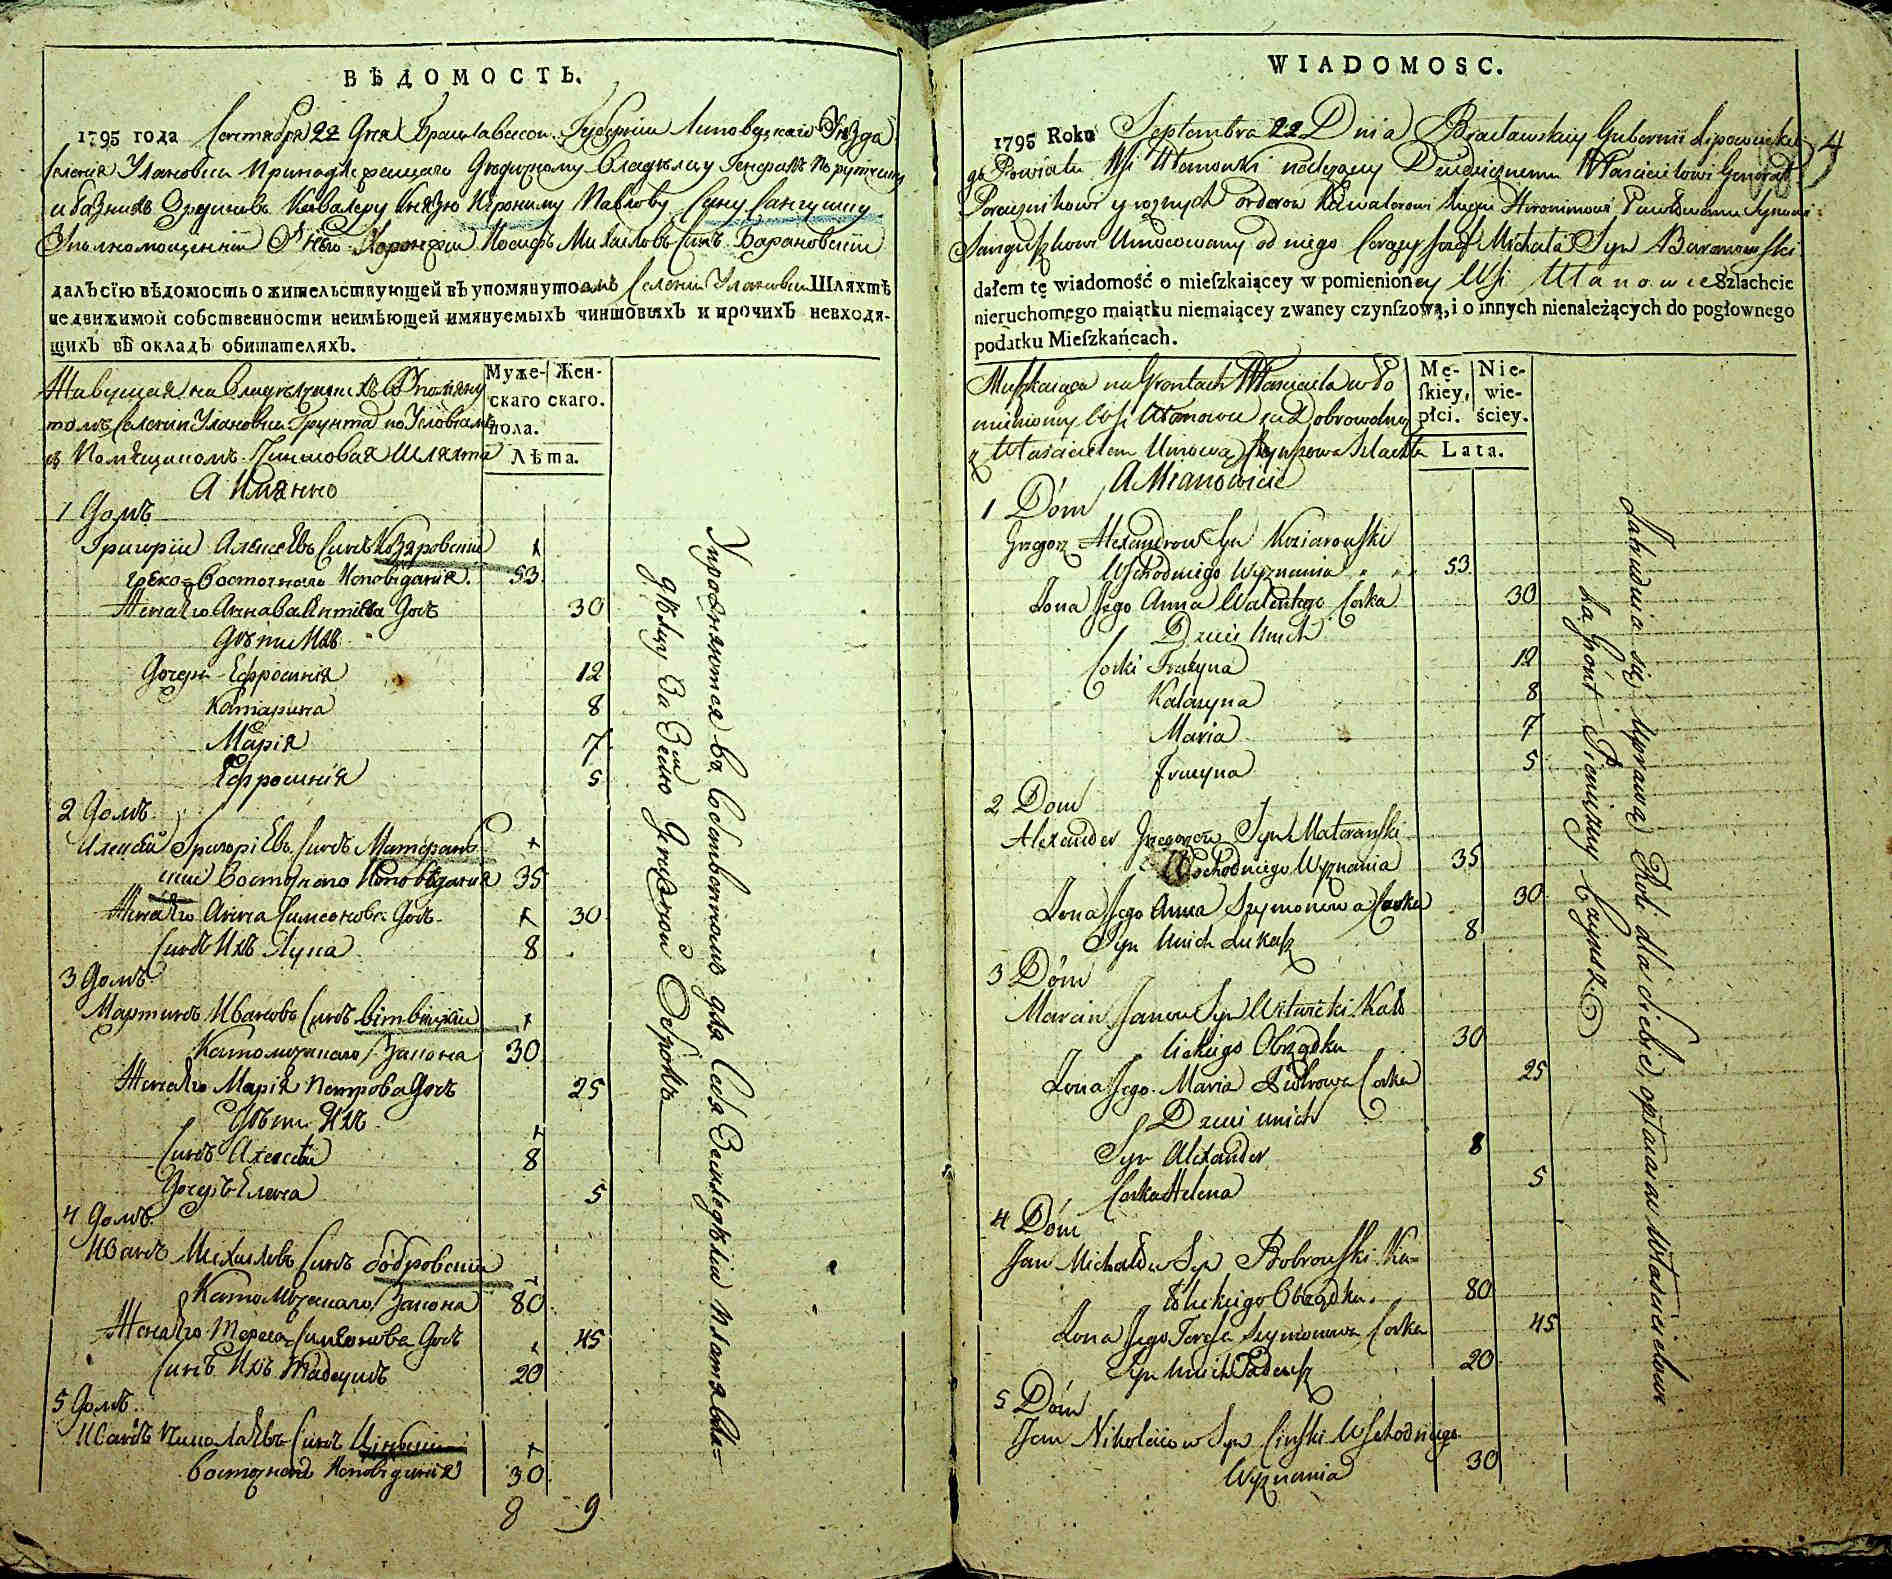 ВѢДОМОСТЬ.
1795 года Сентября 22 Дня Брацлавской Губернии Липовецкаго Уезда
Селения Улановки Принадлежащаго Дедичному Владельцу Генералъ Порутчику
и разныхъ Орденовъ Кавалеру Князю Иерониму Павлову Сыну Сангушку
Уполномоченный От него Хорунжий Иосифъ Михайловъ Сынъ Барановский
далъ сїю вѣдомость о жительствующей въ упомянутомъ Селении Улановки Шляхтѣ
недвижимой собственности неимѣющей имянуемыхъ чиншовыхъ и прочихъ невходя-
щихъ въ окладъ обитателяхъ.
Живущая на Владельческихъ в Упомяну
томъ Селении Улановки Грунтахъ по Условиямъ
съ Помещикомъ Чиншовая Шляхта
А Имянно
Муже-
скаго
пола.
Жен-
скаго.
Лѣта.
1 Домъ
Григорий Алексеевъ Сынъ Козяровский
греко-Восточнаго Исповедания. 53
Жена Его Анна Валентиева Дочь 30
Дети Ихъ
Дочери Ефросиния 12
Катарина 8
Мария 7
Ефросиния 5
2 Домъ
Алексей Григориевъ Сынъ Матеранъ
ский Восточнаго Исповедания 35
Жена Его Анна Симеонова Дочь 30
Сынъ Ихъ Лука 8
3 Домъ
Мартинъ Ивановъ Сынъ Витвицкий
Католическаго Закона 30
Жена Его Мария Петрова Дочь 25
Дети Ихъ
Сынъ Алексей 8
Дочерь Елена 5
4 Домъ
Иванъ Михайловъ Сынъ Бобровский
Католическаго Закона 80
Жена Его Тереса Симеонова Дочь 45
Сынъ Ихъ Тадеушъ 20
5 Домъ
Иванъ Николаевъ Сынъ Цинский
восточнаго Исповедания 30
8 9
Упражняются въ Собственномъ для Себя Земледелии платя Вла-
дельцу За Землю Денежной Оброкъ
WIADOMOSC.
4
1795 Roku Septembra 22 Dnia Bracławskiey Gubernii Lipowieckie
go Powiatu Wsi Ułanowki należącey Dziedzicznemu Włascicielowi Generał
Porucznikowi y roznych orderow Kawalerowi Xięciu Hieronimowi Pawłowemu Synowi
Sanguszkowi Umocowany od niego Chorąży Jozef Michała Syn Baranowski
dałem tę wiadomość o mieſzkaiącey w pomienioney Wsi Ułanowce Szlachcie
nieruchomego maiątku niemaiącey zwaney czynſzową, i o innych nienależących do pogłownego
podatku Mieſzkańcach.
Mieszkaiąca na Gruntach Własciciela w Po
mienioney Wsi Ułanowce za Dobrowolną
z Włascicielem Umową Czynszowa Szlachta
A Mianowicie
Mę-
ſkiey,
płci.
Nie-
wie-
ściey.
Lata.
1 Dom
Grzegorz Alexandrow Syn Koziarowski
Wschodniego Wyznania 53
Zona Jego Anna Walentego Corka 30
Dzieci Unich
Corki Fruzyna 12
Katarzyna 8
Maria 7
Fruzyna 5
2 Dom
Alexander Grzegorzow Syn Materanski
Wschodniego Wyznania 35
Zona Jego Anna Szymonowa Corka 30
Syn Unich Lukasz 8
3 Dom
Marcin Janow Syn Witwicki Kato
lickiego Obrządku 30
Zona Jego Maria Piotrowa Corka 25
Dzieci unich
Syn Alexander 8
Corka Helena 5
4 Dom
Jan Michałow Syn Bobrowski Ka-
tolickiego Obrządku. 80
Zona Jego Teresa Szymonowa Corka 45
Syn Unich Tadeusz 20
5 Dom
Jan Nikołaiow Syn Cinski Wschodniego
Wyznania 30
Zatrudnia się Uprawą Roli dla siebie, opłacaiąc Włascicielowi
za Grónt Pieniężny Czynsz.